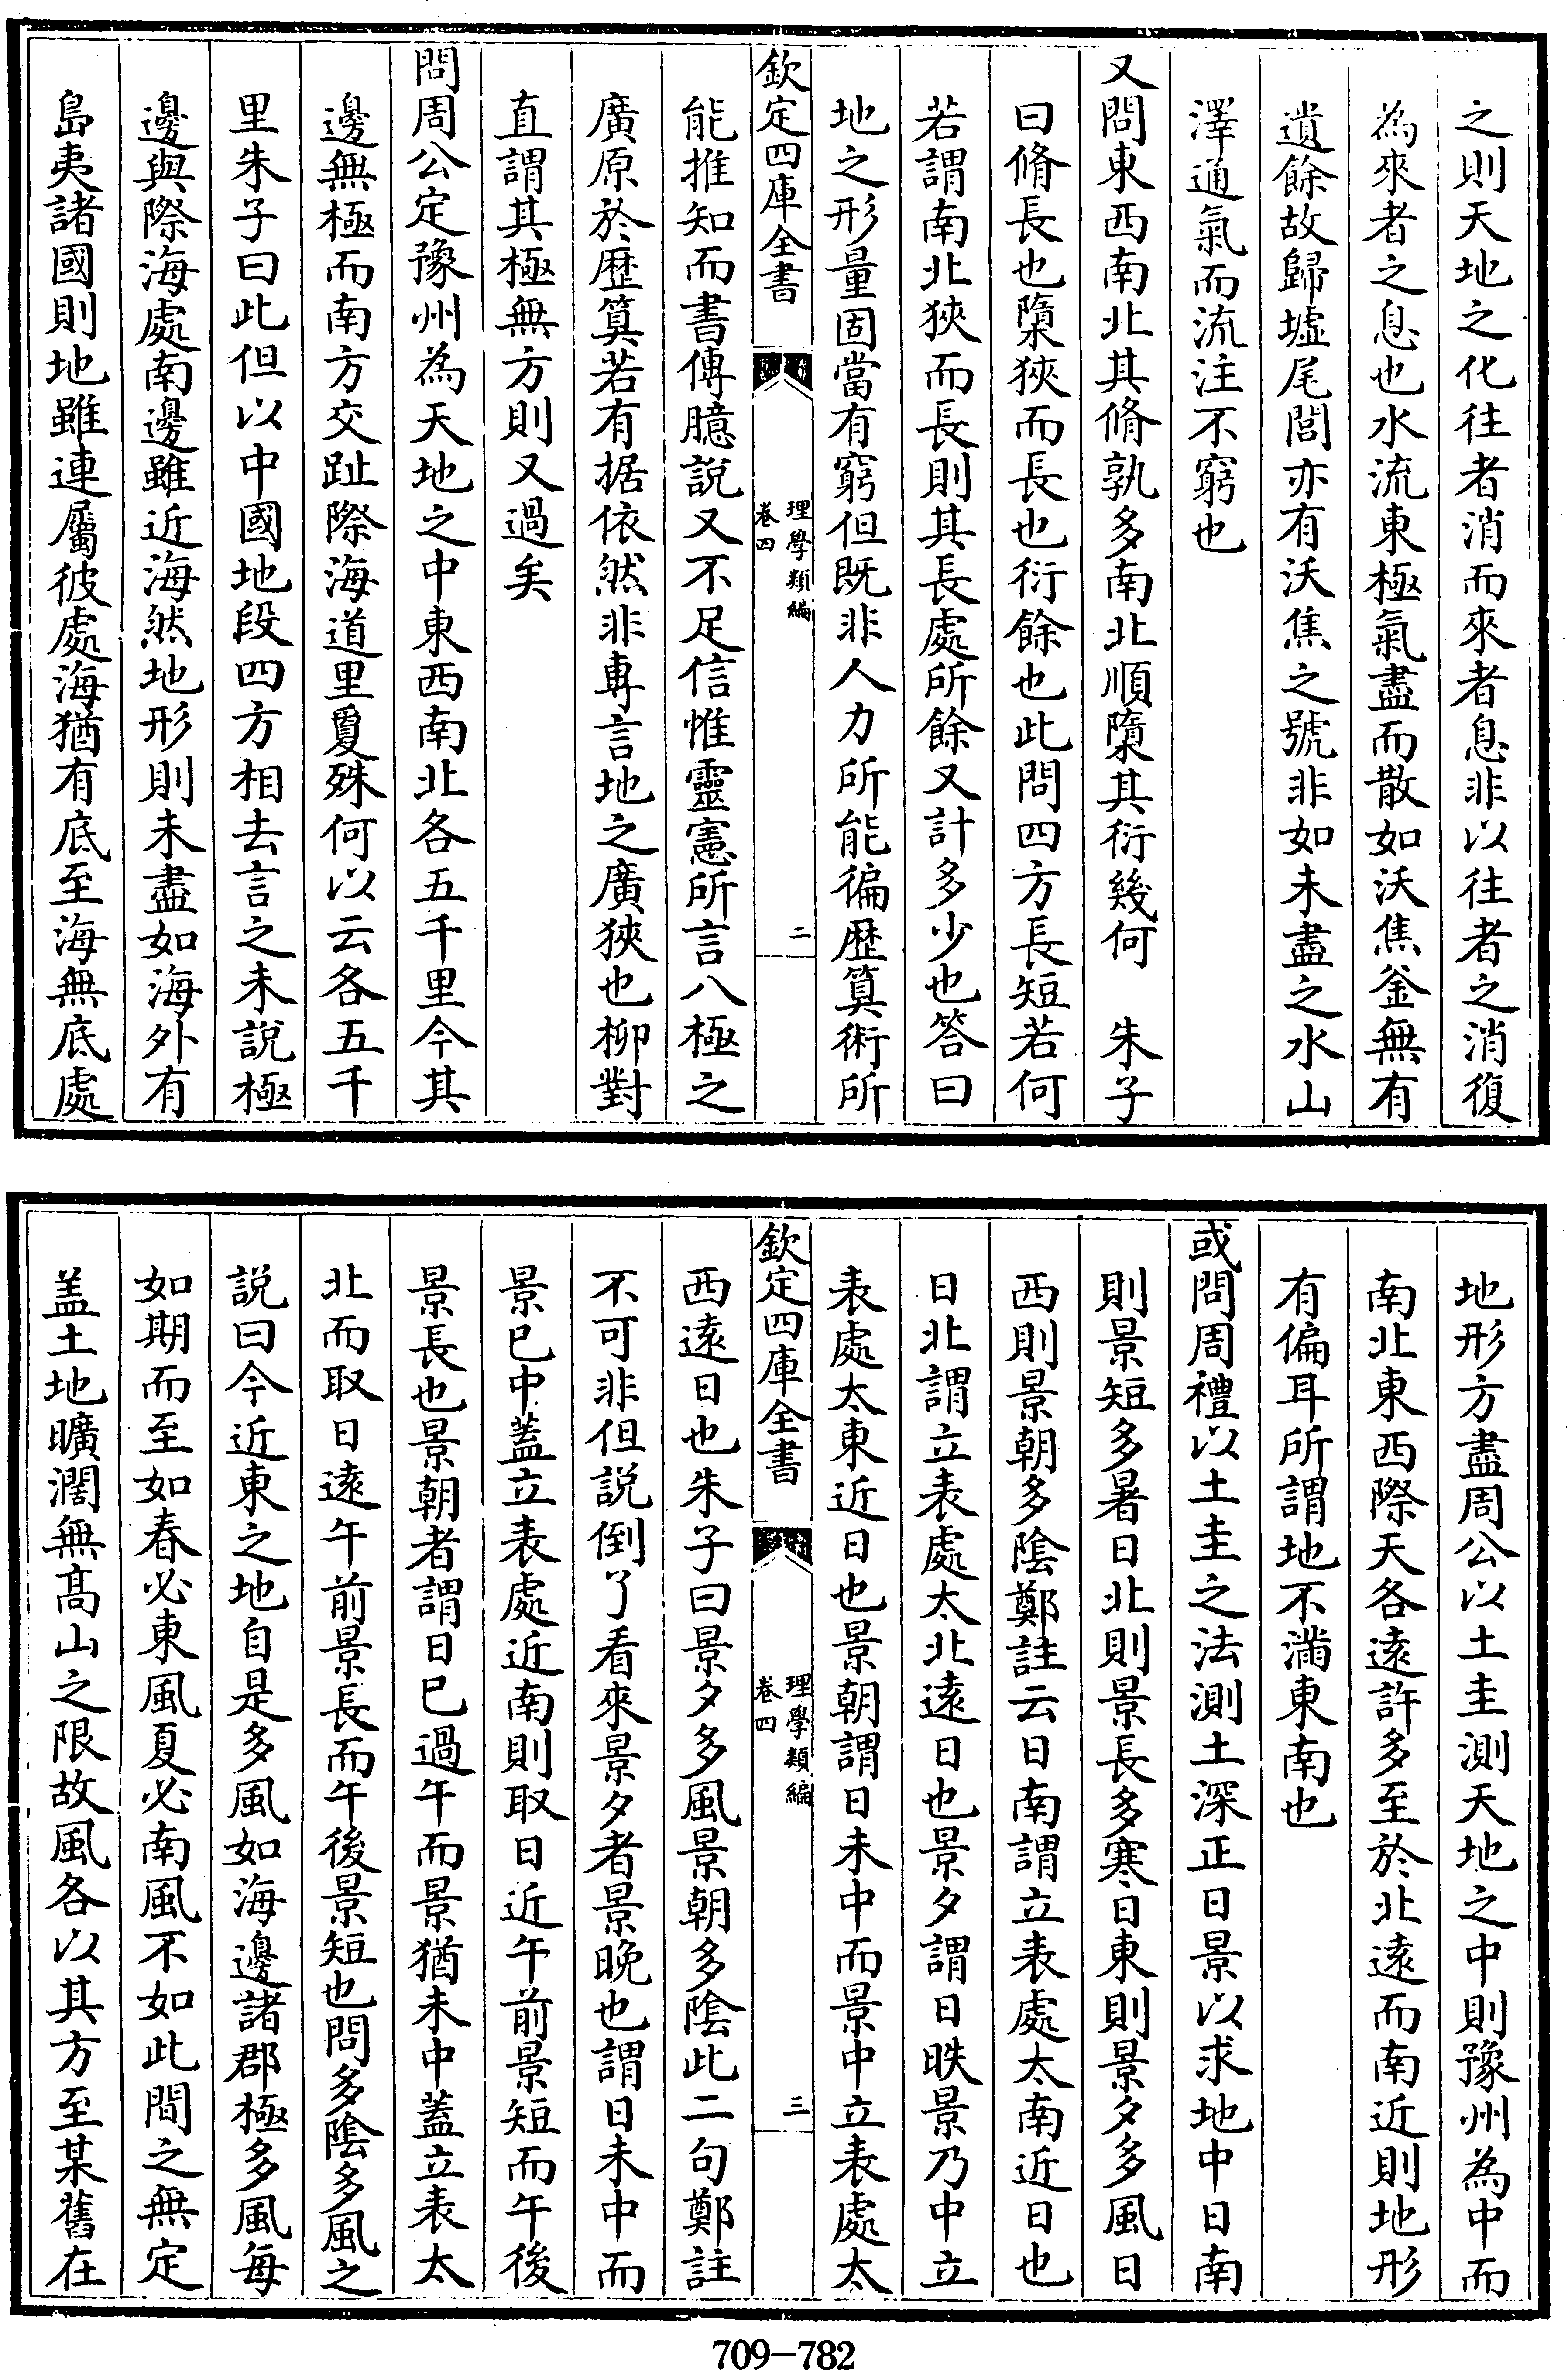 之則天地之化往者消而來者息非以往者之消復
為來者之息也水流東極氣盡而散如沃焦釜無有
遺餘故歸墟尾閭亦有沃焦之號非如未盡之水山
澤通氣而流注不窮也
又問東西南北其脩孰多南北順隳其衍幾何　朱子
曰脩長也隳狹而長也衍餘也此問四方長短若何
若謂南北狹而長則其長處所餘又計多少也答曰
地之形量固當有窮但既非人力所能徧歴算術所
欽定四庫全書
理學類編
卷四
二
能推知而書傳臆說又不足信惟靈憲所言八極之
廣原於歴算若有据依然非專言地之廣狹也柳對
直謂其極無方則又過矣
問周公定豫州為天地之中東西南北各五千里今其
邊無極而南方交趾際海道里夐殊何以云各五千
里朱子曰此但以中國地段四方相去言之未說極
邊與際海處南邊雖近海然地形則未盡如海外有
島夷諸國則地雖連屬彼處海猶有底至海無底處
地形方盡周公以土圭測天地之中則豫州為中而
南北東西際天各遠許多至於北遠而南近則地形
有偏耳所謂地不滿東南也
或問周禮以土圭之法測土深正日景以求地中日南
則景短多暑日北則景長多寒日東則景夕多風日
西則景朝多隂鄭註云日南謂立表處太南近日也
日北謂立表處太北遠日也景夕謂日昳景乃中立
表處太東近日也景朝謂日未中而景中立表處太
欽定四庫全書
理學類編
卷四
三
西遠日也朱子曰景夕多風景朝多隂此二句鄭註
不可非但説倒了看來景夕者景晩也謂日未中而
景已中蓋立表處近南則取日近午前景短而午後
景長也景朝者謂日已過午而景猶未中蓋立表太
北而取日遠午前景長而午後景短也問多隂多風之
説曰今近東之地自是多風如海邊諸郡極多風每
如期而至如春必東風夏必南風不如此間之無定
盖土地曠濶無髙山之限故風各以其方至某舊在
709-782